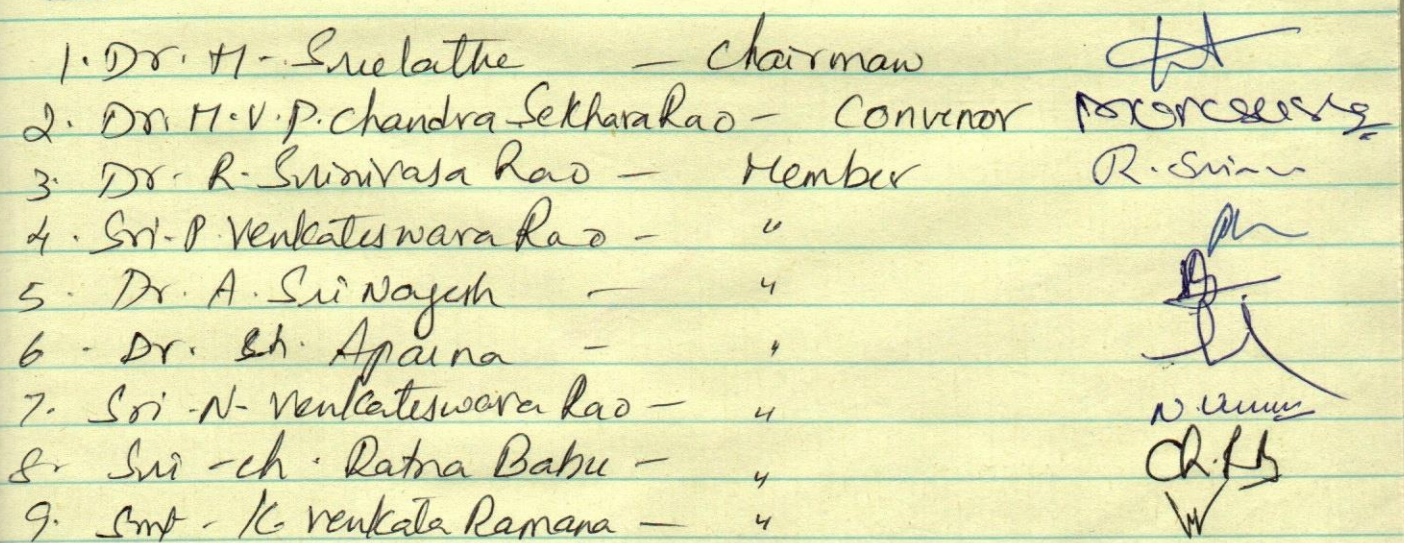 1. Dr. M. Sreelatha - Chairman
2. Dr. M.V.P. Chandra Sekhara Rao - Convenor
3. Dr. R. Srinivasa Rao - Member R. Srinu
4. Sri. P. Venkateswara Rao - "
5. Dr. A. Sri Nagesh - "
6. Dr. Ch. Aparna - "
7. Sri. N. Venkateswara Rao - "
8. Sri. Ch. Ratna Babu - "
9. Smt. K. Venkata Ramana - "